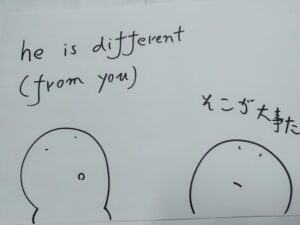 he is different
(from you)
そこが大事だ